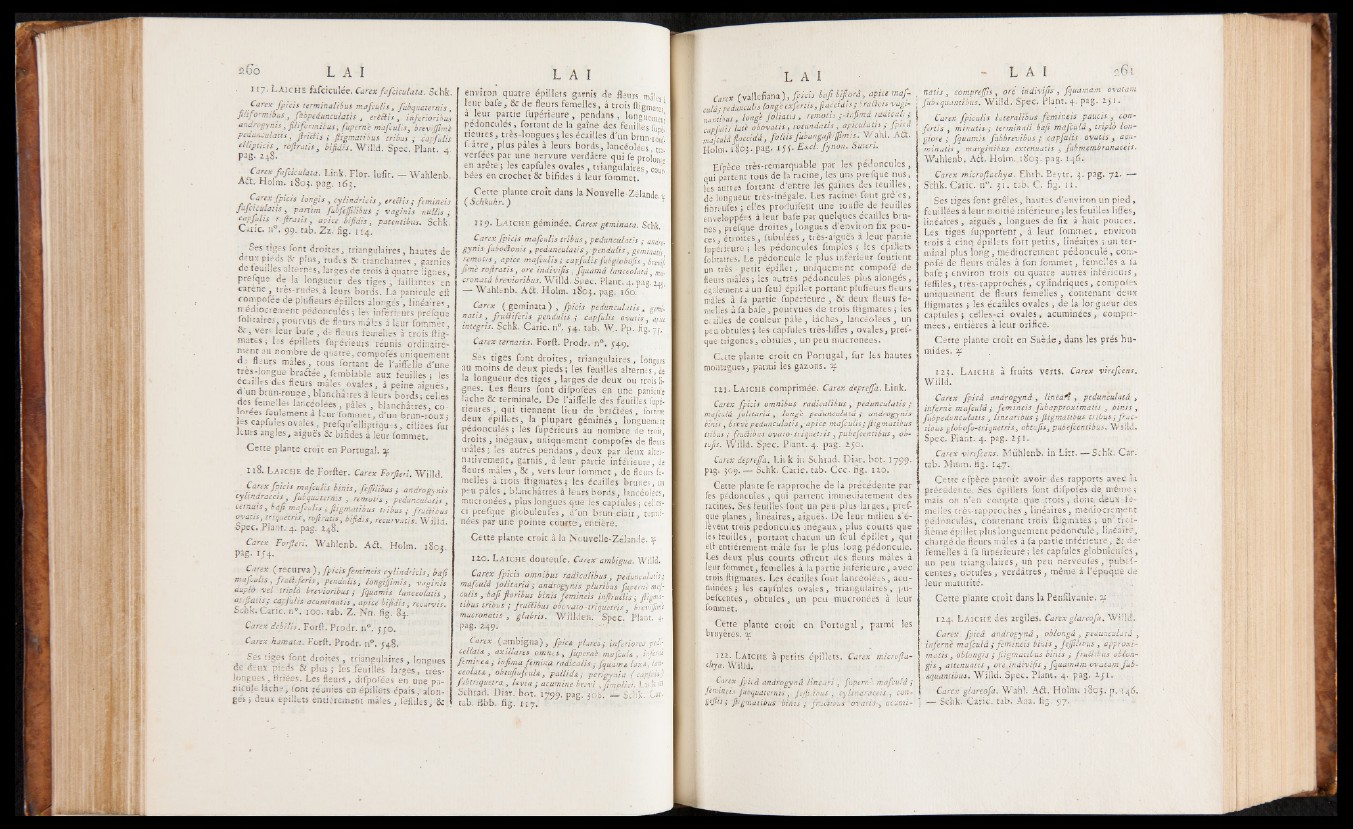 260 L A I
117. LAICHE fasciculée. Carex fasciculata. Schk.
Carex spicis terminalibus masculis, subquaternis,
filiformibus, subpedunculatis, erectis, inferioribus
androgynis, filiformibus, supernè masculis, brevissimè
pedunculatis, strictis; stigmatibus tribus, capsulis
ellipticis, rostratis, bifidis. Willd. Spec. Plant. 4.
pag. 248.
Carex fasciculata. Link. Flor. lusit. — Wahlenb.
Act. Holm. 1803. pag. 163.
Carex spicis longis, cylindricis, erectis; femineis
fasciculatis, partim subsessilibus; vaginis nullis,
capsulis rostratis, apice bifidis, patentibus. Schk.
Caric. n°. 99. tab. Zz. fig. 114.
Ses tiges sont droites, triangulaires, hautes de
deux pieds & plus, rudes & tranchantes, garnies
de feuilles alternes, larges de trois à quatre lignes,
presque de la longueur des tiges, saillantes en
carène, très-rudes à leurs bords. La panicule est
composée de plusieurs épillets alongés, linéaires,
médiocrement pédonculés; les inférieurs presque
solitaires, pourvus de fleurs mâles à leur sommet,
&, vers leur base, de fleurs femelles à trois stig-
mates; les épillets supérieurs réunis ordinaire-
ment au nombre de quatre, composés uniquement
de fleurs mâles, tous sortant de l'aisselle d'une
très-longue bractée, semblable aux feuilles; les
écailles des fleurs mâles ovales, à peine aiguës,
d'un brun-rouge, blanchâtres à leurs bords; celles
des femelles lancéolées, pâles, blanchâtres, co-
lorées seulement à leur sommet, d'un brun-roux;
les capsules ovales, presqu'elliptiques, ciliées sur
leurs angles, aiguës & bifides à leur sommet.
Cette plante croît en Portugal. ♃
118. LAICHE de Forster. Carex Forsteri. Willd.
Carex spicis masculis binis, sessilibus; androgynis
cylindraceis, subquaternis, remotis, pedunculatis,
cernuis, basi masculis; stigmatibus tribus; fructibus
ovatis, triquetris, rostratis, bifidis, recurvatis. Willd.
Spec. Plant. 4. pag. 248.
Carex Forsteri. Wahlenb. Act. Holm. 1803.
pag. 154.
Carex (recurva), spicis femineis cylindricis, basi
masculis, fructiferis, pendulis, longissimis, vaginis
duplò vel triplò brevioribus; squamis lanceolatis,
aristatis; capsulis acuminatis, apice bifidis, recurvis.
Schk. Caric. n°. 100. tab. Z. Nn. fig. 83.
Carex debilis. Forst. Prodr. n°. 550.
Carex hamata. Forst. Prodr. n°. 548.
Ses tiges sont droites, triangulaires, longues
de deux pieds & plus; les feuilles larges, très-
longues, striées. Les fleurs, disposées en une pa-
nicule lâche, sont réunies en épillets épais, alon-
gés; deux épillets entièrement mâles, sessiles, &
L A I
environ quatre épillets garnis de fleurs mâles à
leur base, & de fleurs femelles, à trois stigmates,
à leur partie supérieure, pendans, longuement
pédonculés, sortant de la gaîne des feuilles supé-
rieures, très-longues; les écailles d'un brun-rouss-
sâtre, plus pâles à leurs bords, lancéolées, tra-
versées par une nervure verdâtre qui se prolonge
en arête; les capsules ovales, triangulaires, cour-
bées en crochet & bifides à leur sommet.
Cette plante croît dans la Nouvelle-Zélande. ♃
(Schkuhr.)
119. LAICHE géminée. Carex geminata. Schk.
Carex spicis masculis tribus, pedunculatis; andro-
gynis suboctonis, pedunculatis, pendulis, geminatis,
remotis, apice masculis; capsulis subglobosis, brevis-
simè rostratis, ore indivisis, squamâ lanceolatâ, mu-
cronatâ brevioribus. Willd. Spec. Plant. 4. pag. 249.
— Wahlenb. Act. Holm. 1803. pag. 160.
Carex (geminata), spicis pedunculatis, gemi-
natis, fructiferis pendulis; capsulis ovatis, ore
integris. Schk. Caric. n°. 54. tab. W. Pp. fig. 75.
Carex ternaria. Forst. Prodr. n°. 549.
Ses tiges sont droites, triangulaires, longues
au moins de deux pieds; les feuilles alternes, de
la longueur des tiges, larges de deux ou trois li-
gnes. Les fleurs sont disposées en une panicule
lâche & terminale. De l'aisselle des feuilles supé-
rieures, qui tiennent lieu de bractées, sortent
deux épillets, la plupart géminés, longuement
pédonculés; les supérieurs au nombre de trois,
droits, inégaux, uniquement composés de fleurs
mâles; les autres pendans, deux par deux alter-
nativement, garnis, à leur partie inférieure, de
fleurs mâles, &, vers leur sommet, de fleurs fe-
melles à trois stigmates; les écailles brunes, un
peu pâles, blanchâtres à leurs bords, lancéolées,
mucronées, plus longues que les capsules; celles-
ci presque globuleuses, d'un brun clair, termi-
nées par une pointe courte, entière.
Cette plante croît à la Nouvelle-Zélande. ♃
120. LAICHE douteuse. Carex ambigua. Willd.
Carex spicis omnibus radicalibus, pedunculatis;
masculâ solitariâ; androgynis pluribus supernè mas-
culis, basi floribus binis femineis instructis, stigma-
tibus tribus; fructibus obovato-triquetris, brevissimè
mucronatis, glabris. Willden. Spec. Plant. 4.
pag. 249.
Carex (ambigua), spicæ plures; inferiores
axillares omnes, supernè mascula, infernè
feminea, infima feminea radicalis; squamæ
obtusiusculæ, pallidæ; perigynia (capsula)
subtriquetra, lævia; acumine brevi, simplici. Link in
Schrad. Diar. bot. 1799. pag. 308. — Schk. Car.
tab. Bbb. fig. 117.
L A I
Carex (vallesiana), spicis basi bifloris, apice mas-
culis; pedunculis longè exsertis, fructiculis; bracteis vagi-
nantibus, longè foliatis, remotis; infimâ radicali;
capsulis latè obovatis, rotundatis, apiculatis; spicâ
masculâ flaccidâ, foliis subangustissimis. Wahl. Act.
Holm. 1803. pag. 155. Excl. synon. Suteri.
Espèce très-remarquable par les pédoncules,
qui partent tous de la racine, les uns presque nus,
les autres sortant d'entre les gaînes des feuilles,
de longueur très-inégale. Les racines sont grêles,
fibreuses; elles produisent une touffe de feuilles
enveloppées à leur base par quelques écailles bru-
nes, presque droites, longues d'environ six pou-
ces, étroites, subulées, très-aiguës à leur partie
supérieure; les pédoncules simples; les épillets
solitaires. Le pédoncule le plus inférieur soutient
un très-petit épillet, uniquement composé de
fleurs mâles; les autres pédoncules plus alongés,
également à un seul épillet portant plusieurs fleurs
mâles à sa partie supérieure, & deux fleurs fe-
melles à sa base, pourvues de trois stigmates; les
écailles de couleur pâle, lâches, lancéolées, un
peu obtuses; les capsules très-lisses, ovales, pres-
que trigones, obtuses, un peu mucronées.
Cette plante croît en Portugal, sur les hautes
montagnes, parmi les gazons. ♃
121. LAICHE comprimée. Carex depressa. Link.
Carex spicis omnibus radicalibus, pedunculatis;
masculâ solitariâ, longè pedunculatâ; androgynis
binis, breve pedunculatis, apice masculis; stigmatibus
tribus; fructibus ovato-triquetris, pubescentibus, ob-
tusis. Willd. Spec. Plant. 4. pag. 250.
Carex depressa. Link in Schrad. Diar. bot. 1799.
pag. 309. — Schk. Caric. tab. Ccc. fig. 120.
Cette plante se rapproche de la précédente par
ses pédoncules, qui partent immédiatement des
racines. Ses feuilles sont un peu plus larges, pres-
que planes, linéaires, aiguës. De leur milieu s'é-
lèvent trois pédoncules inégaux, plus courts que
les feuilles, portant chacun un seul épillet, qui
est entièrement mâle sur le plus long pédoncule.
Les deux plus courts offrent des fleurs mâles à
leur sommet, femelles à la partie inférieure, avec
trois stigmates. Les écailles sont lancéolées, acu-
minées; les capsules ovales, triangulaires, pu-
bescentes, obtuses, un peu mucronées à leur
sommet.
Cette plante croît en Portugal, parmi les
bruyères. ♃
122. LAICHE à petits épillets. Carex microsta-
chya. Willd.
Carex spicâ androgynâ lineari, supernè masculâ;
femineis subquaternis, sessilibus, cylindraceis, con-
gestis; stigmatibus binis; fructibus ovatis, acumi-
L A I 261
natis, compressis, ore indivisis, squamam ovatam
subæquantibus. Willd. Spec. Plant. 4. pag. 251.
Carex spiculis lateralibus femineis paucis, con-
fertis, minutis; terminali basi masculâ, triplò lon-
giore; squamis subbrevibus; capsulis ovatis, acu-
minatis, marginibus extenuatis, submembranaceis.
Wahlenb. Act. Holm. 1803. pag. 146.
Carex microstachya. Ehrh. Beytr. 4. pag. 72. —
Schk. Caric. n°. 31. tab. C. fig. 11.
Ses tiges sont grêles, hautes d'environ un pied,
feuillées à leur moitié inférieure; les feuilles lisses,
linéaires, aiguës, longues de six à huit pouces.
Les tiges supportent, à leur sommet, environ
trois à cinq épillets fort petits, linéaires; un ter-
minal plus long, médiocrement pédonculé, com-
posé de fleurs mâles à son sommet, femelles à la
base; environ trois ou quatre autres inférieurs,
sessiles, très-rapprochés, cylindriques, composés
uniquement de fleurs femelles, contenant deux
stigmates; les écailles ovales, de la longueur des
capsules; celles-ci ovales, acuminées, compri-
mées, entières à leur orifice.
Cette plante croît en Suède, dans les prés hu-
mides. ♃
123. LAICHE à fruits verts. Carex virescens.
Willd.
Carex spicâ androgynâ, lineari, pedunculatâ,
infernè masculâ; femineis subapproximatis, binis,
subpedunculatis, linearibus; stigmatibus tribus; fruc-
tibus globoso-triquetris, obtusis, pubescentibus. Willd.
Spec. Plant. 4. pag. 251.
Carex virescens. Mühlenb. in Litt. — Schk. Car.
tab. Mmm. fig. 147.
Cette espèce paroît avoir des rapports avec la
précédente. Ses épillets sont disposés de même;
mais on n'en compte que trois, dont deux fe-
melles très-rapprochés, linéaires, médiocrement
pédonculés, contenant trois stigmates; un troi-
sième épillet plus longuement pédonculé, linéaire,
chargé de fleurs mâles à sa partie inférieure, & de
femelles à sa supérieure; les capsules globuleuses,
un peu triangulaires, un peu nerveuses, pubes-
centes, obtuses, verdâtres, même à l'époque de
leur maturité.
Cette plante croît dans la Pensilvanie. ♃
124. LAICHE des argiles. Carex glareosa. Willd.
Carex spicâ androgynâ, oblongâ, pedunculatâ,
infernè masculâ; femineis binis, sessilibus, approxi-
matis, oblongis; stigmatibus binis; fructibus oblon-
gis, attenuatis, ore indivisis, squamam ovatam sub-
æquantibus. Willd. Spec. Plant. 4. pag. 251.
Carex glareosa. Wahl. Act. Holm. 1803. p. 146.
— Schk. Caric. tab. Aaa. fig. 97.